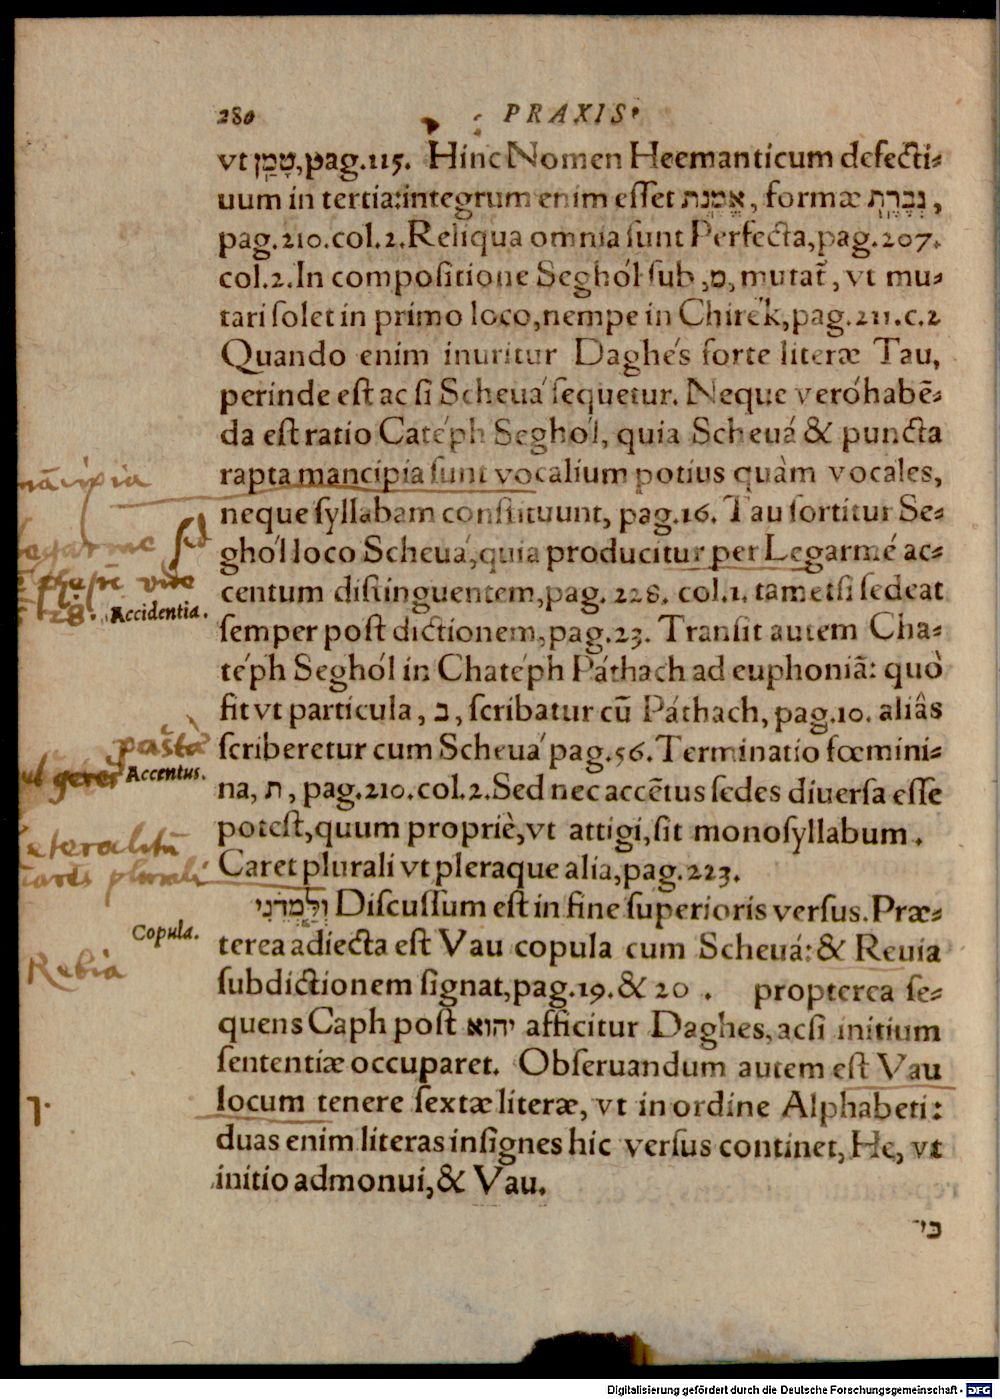 280 PRAXIS.
vt טָמַן, pag.115. Hinc Nomen Heemanticum defecti-
uum in tertia: integrum enim esset אֲמֶנֶת, formæ גְּבֶרֶת,
pag.210.col.2.Reliqua omnia sunt Perfecta,pag.207.
col.2.In compositione Seghól sub ,מ, mutat̃, vt mu-
tari solet in primo loco,nempe in Chirék,pag.211.c.2
Quando enim inuritur Daghés forte literæ Tau,
perinde est ac si Scheuá sequetur. Neque veró habẽ-
da est ratio Catéph Seghól, quia Scheuá & puncta
rapta mancipia sunt vocalium potius quàm vocales,
neque syllabam constituunt, pag.16. Tau sortitur Se-
ghól loco Scheuá,quia producitur per Legarmé ac-
centum distinguentem,pag. 228. col.1. tametsi sedeat
semper post dictionem,pag.23. Transit autem Cha-
téph Seghól in Chatéph Páthach ad euphoniã: quò
fit vt particula , ב, scribatur cũ Páthach, pag.10. aliâs
scriberetur cum Scheuá pag.56.Terminatio fœmini-
na, ת, pag.210.col.2.Sed nec accẽtus sedes diuersa esse
potest,quum propriè,vt attigi,sit monosyllabum.
Caret plurali vt pleraque alia,pag.223.
וְלַמְּדֵנִי Discussum est in fine superioris versus.Præ-
terea adiecta est Vau copula cum Scheuá: & Reuia
subdictionem signat,pag.19.& 20 . propterea se-
quens Caph post יהוא afficitur Daghes, acsi initium
sententiæ occuparet. Obseruandum autem est Vau
locum tenere sextæ literæ, vt in ordine Alphabeti:
duas enim literas insignes hic versus continet, He, vt
initio admonui,& Vau.
כי־
mãcipia
legarme sed
128. Accidentia.
pašta
geres Accentus.
caret plurali
Copula.
Rebia
ו.
Digitalisierung gefördert durch die Deutsche Forschungsgemeinschaft - DFG